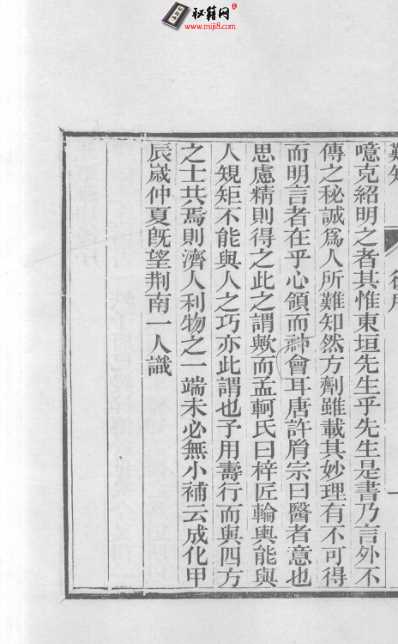 秘籍网
www.miji8.com
難知
後序
噫克紹明之者其惟東垣先生乎先生是書乃言外不
傳之秘誠爲人所難知然方劑雖載其妙理有不可得
而明言者在乎心領而神會耳唐許胤宗曰醫者意也
思慮精則得之此之謂歟而孟軻氏曰梓匠輪輿能與
人規矩不能與人之巧亦此謂也予用壽行而與四方
之士共焉則濟人利物之一端未必無小補云成化甲
辰歲仲夏旣望荆南一人識